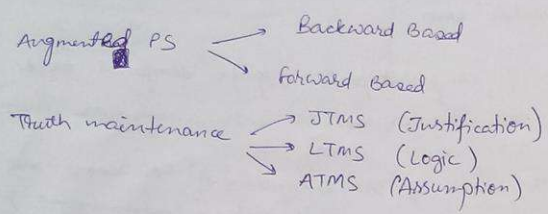 Augmented PS → Backward Based
→ forward Based
Truth maintenance → JTMS (Justification)
→ LTMS (Logic)
→ ATMS (Assumption)